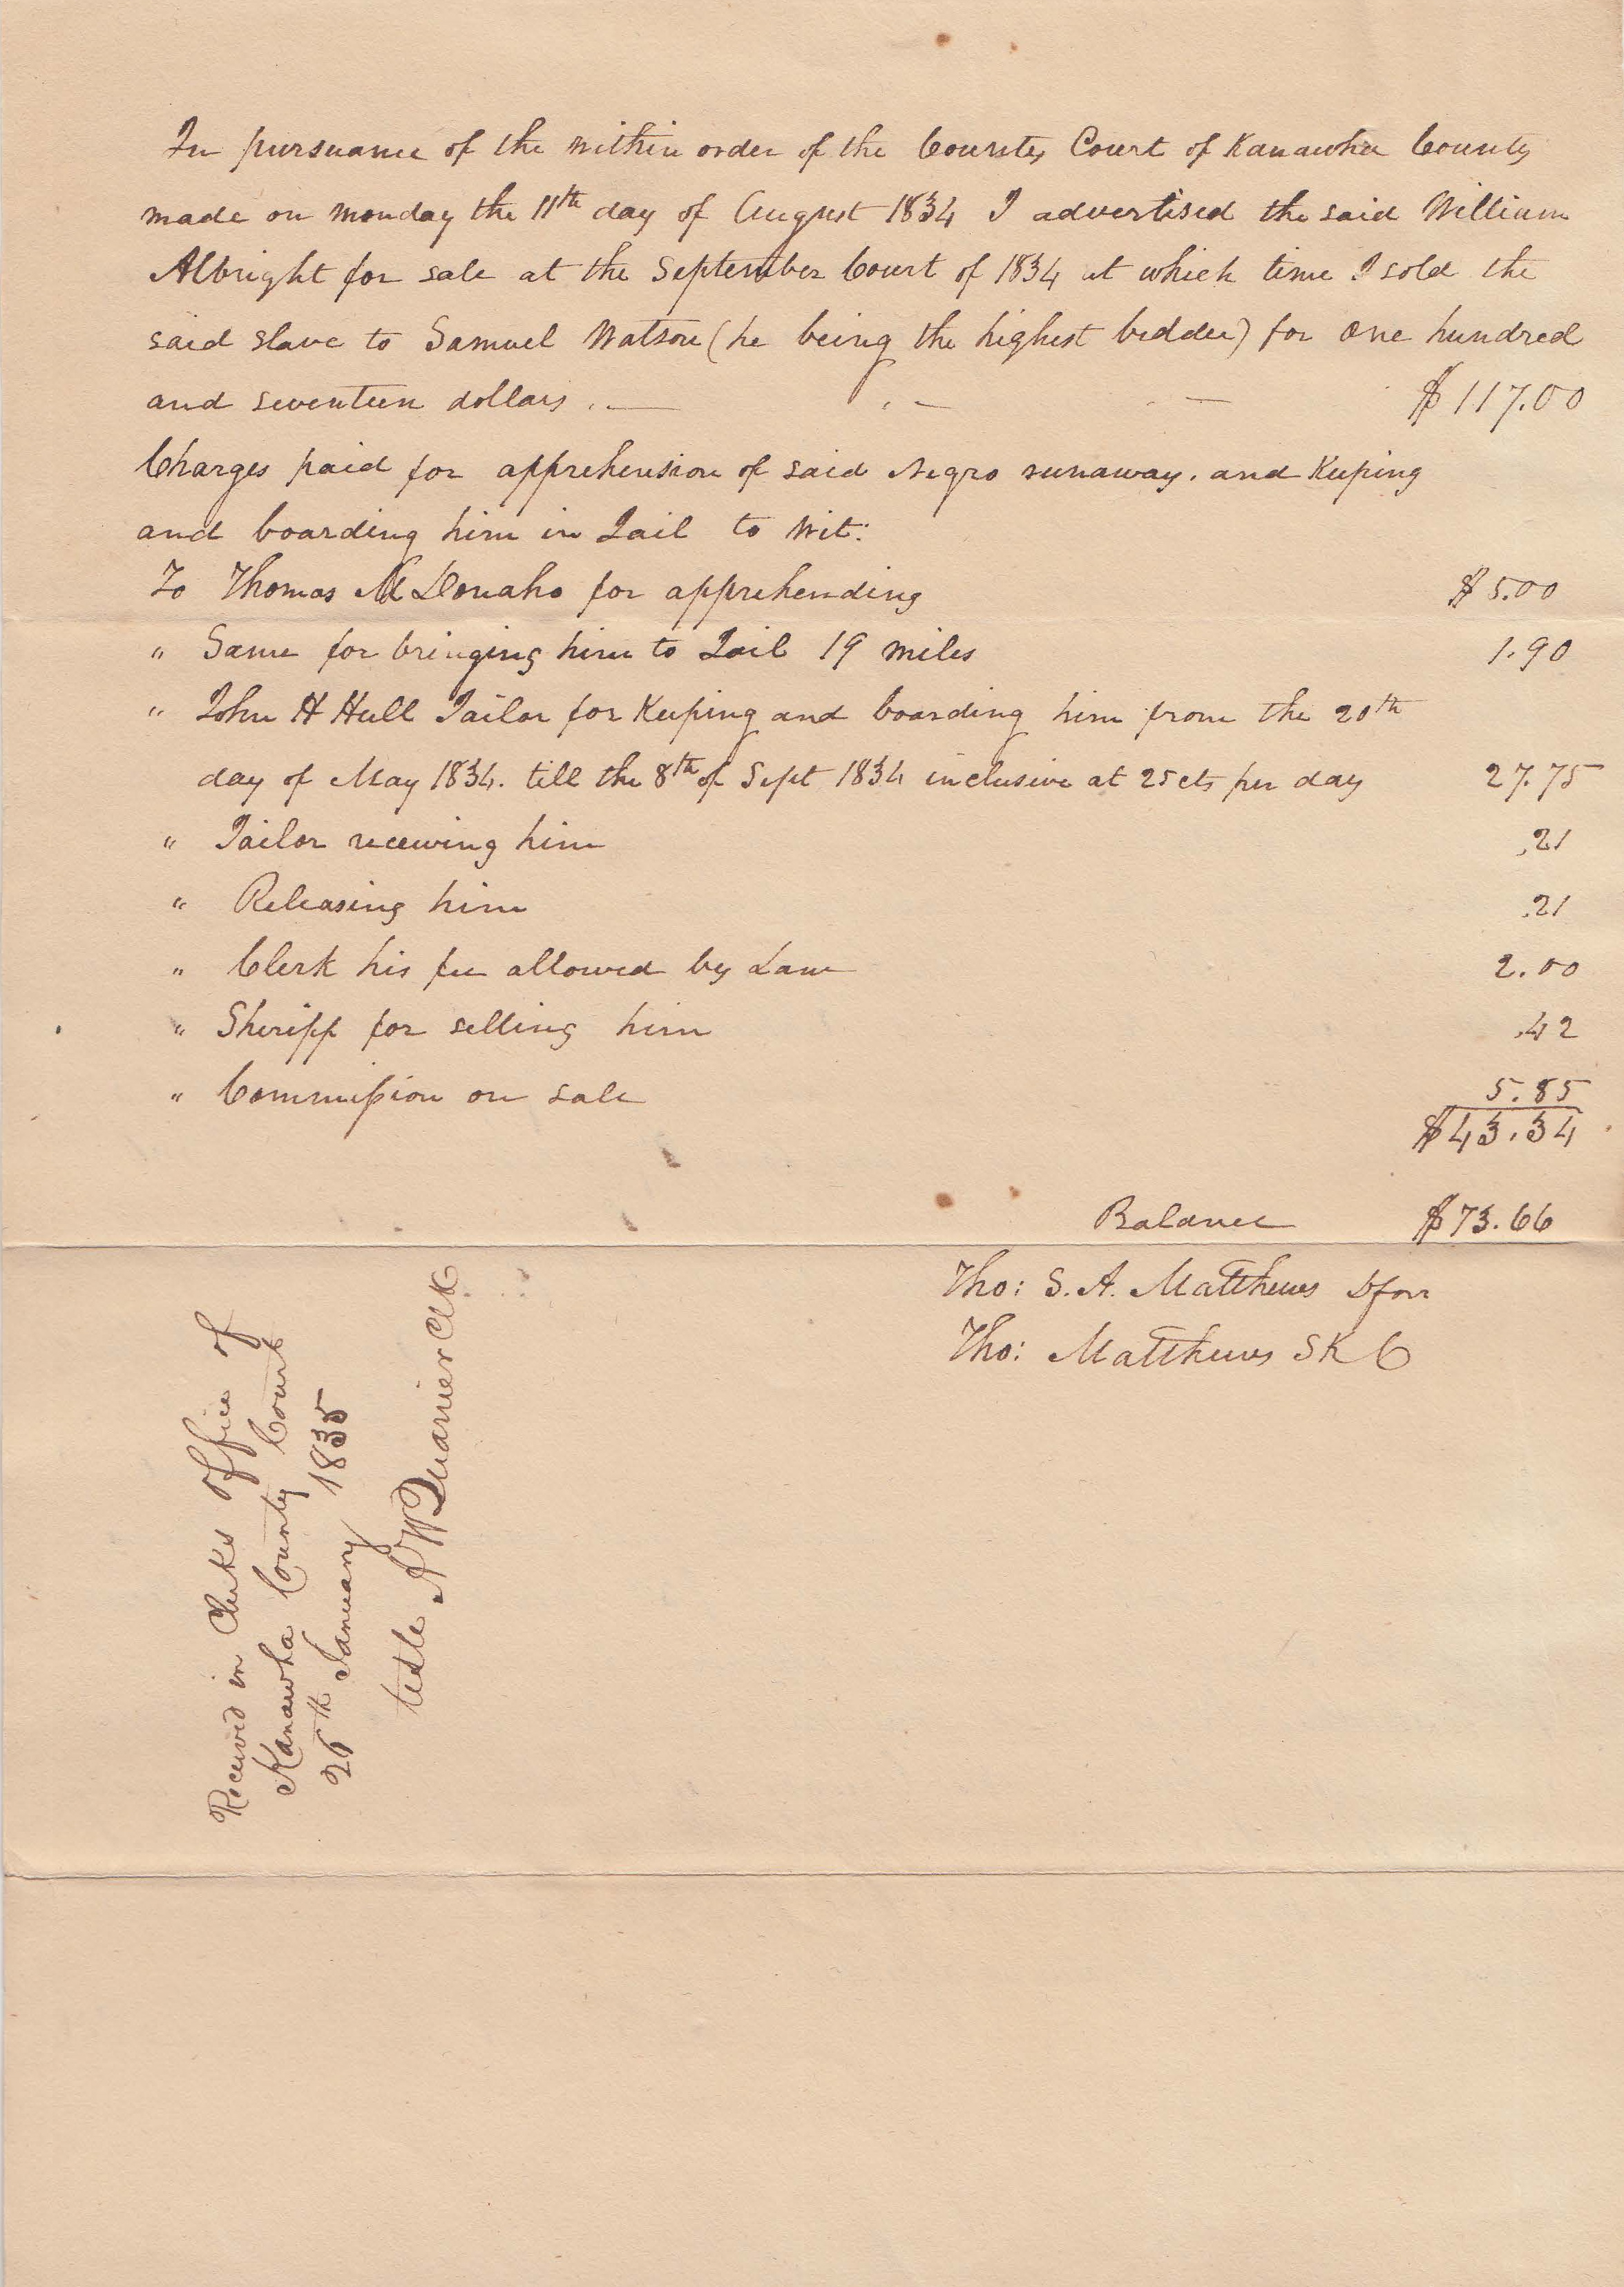 In pursuance of the within order of the County Court of Kanawha County
made on monday the 11th day of August 1834 I advertised the said William
Albright for sale at the September Court of 1834 at which time I sold the
said slave to Samuel Watson (he being the highest bidder) for one hundred
and seventeen dollars . — . — - — $117.00
Charges paid for apprehension of said Negro runaway. and Keeping
and boarding him in Jail to wit:
To Thomas Mc Donaho for apprehending $5.00
" Same for bringing him to Jail 19 miles 1.90
" John H Hull Jailor for Keeping and boarding him from the 20th
day of May 1834. till the 8th of Sept 1834 inclusive at 25 cts per day 27.75
" Jailor receiving him .21
" Releasing him .21
" Clerk his fee allowed by Law 2.00
" Sheriff for selling him .42
" Commission on sale 5.85
$43.34
Balance $73.66
Tho: S. A. Matthews D for
Tho: Matthews S K C
Received in Clerks office of
Kanawha County Court
26th January 1835
teste A W Quarrier Clk